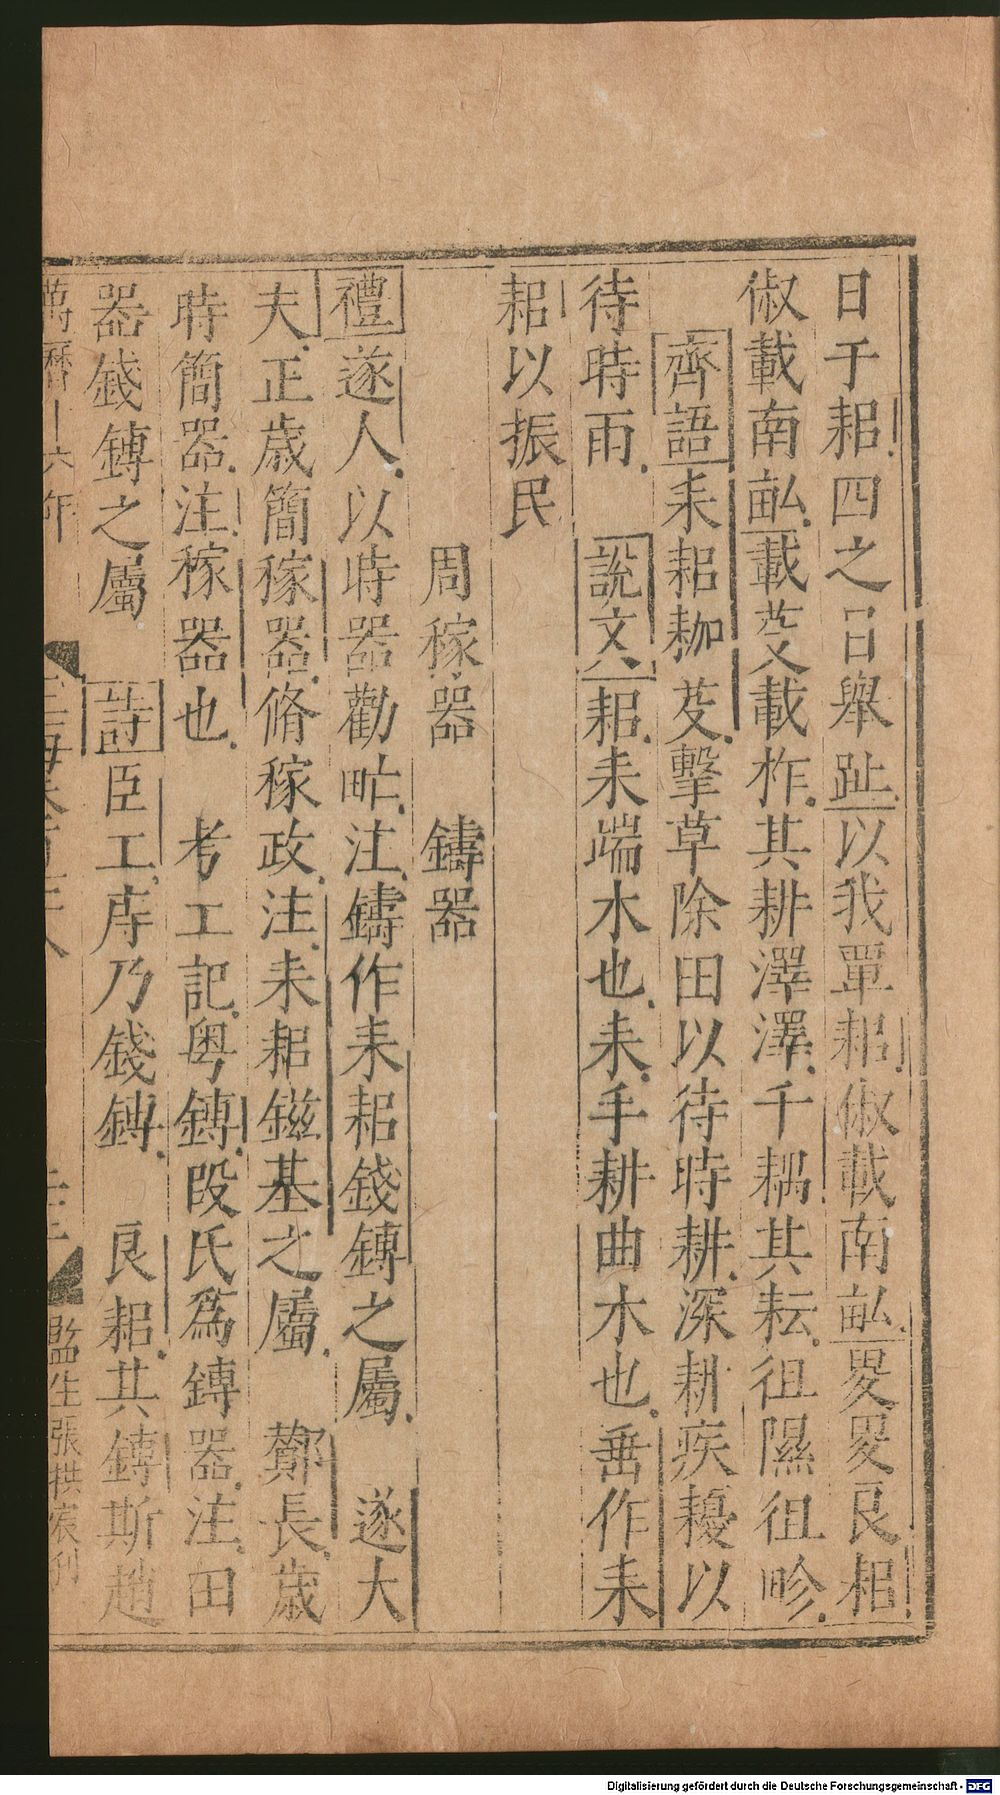 日于耜四之日舉趾以我覃耜俶載南畝畟畟良耜
俶載南畝載芟載柞其耕澤澤千耦其耘徂隰徂畛
齊語耒耜耞芟擊草除田以待時耕深耕疾耰以
待時雨　說文耜耒端木也耒手耕曲木也垂作耒
耜以振民
周稼器　鑄器
禮遂人以時器勸甿注鑄作耒耜錢鎛之屬　遂大
夫正歲簡稼器脩稼政注耒耜鎡基之屬　酇長歲
時簡器注稼器也　考工記粤鎛段氏爲鎛器注田
器錢鎛之屬　詩臣工庤乃錢鎛　良耜其鎛斯趙
萬曆十六年
監生張拱宸刊
Digitalisierung gefördert durch die Deutsche Forschungsgemeinschaft - DFG